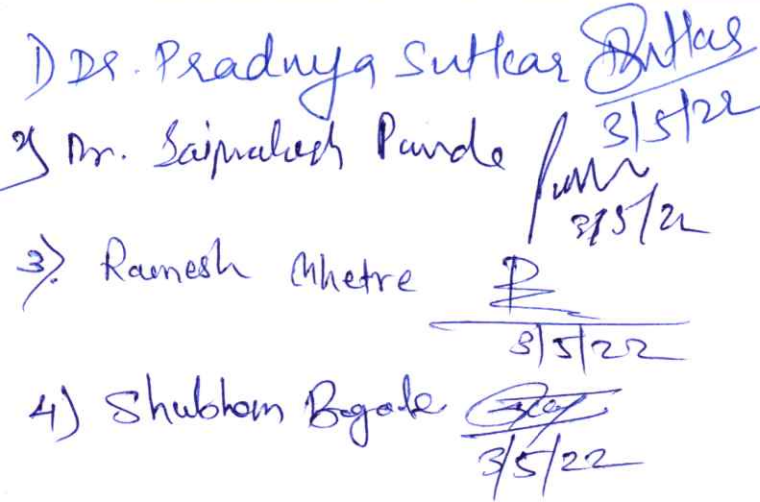 1) Dr. Pradnya Sutkar Sutkar
3/5/22
2) Dr. Saiprakash Pande
3/5/22
3) Ramesh Mhetre
3/5/22
4) Shubham Bogale
3/5/22